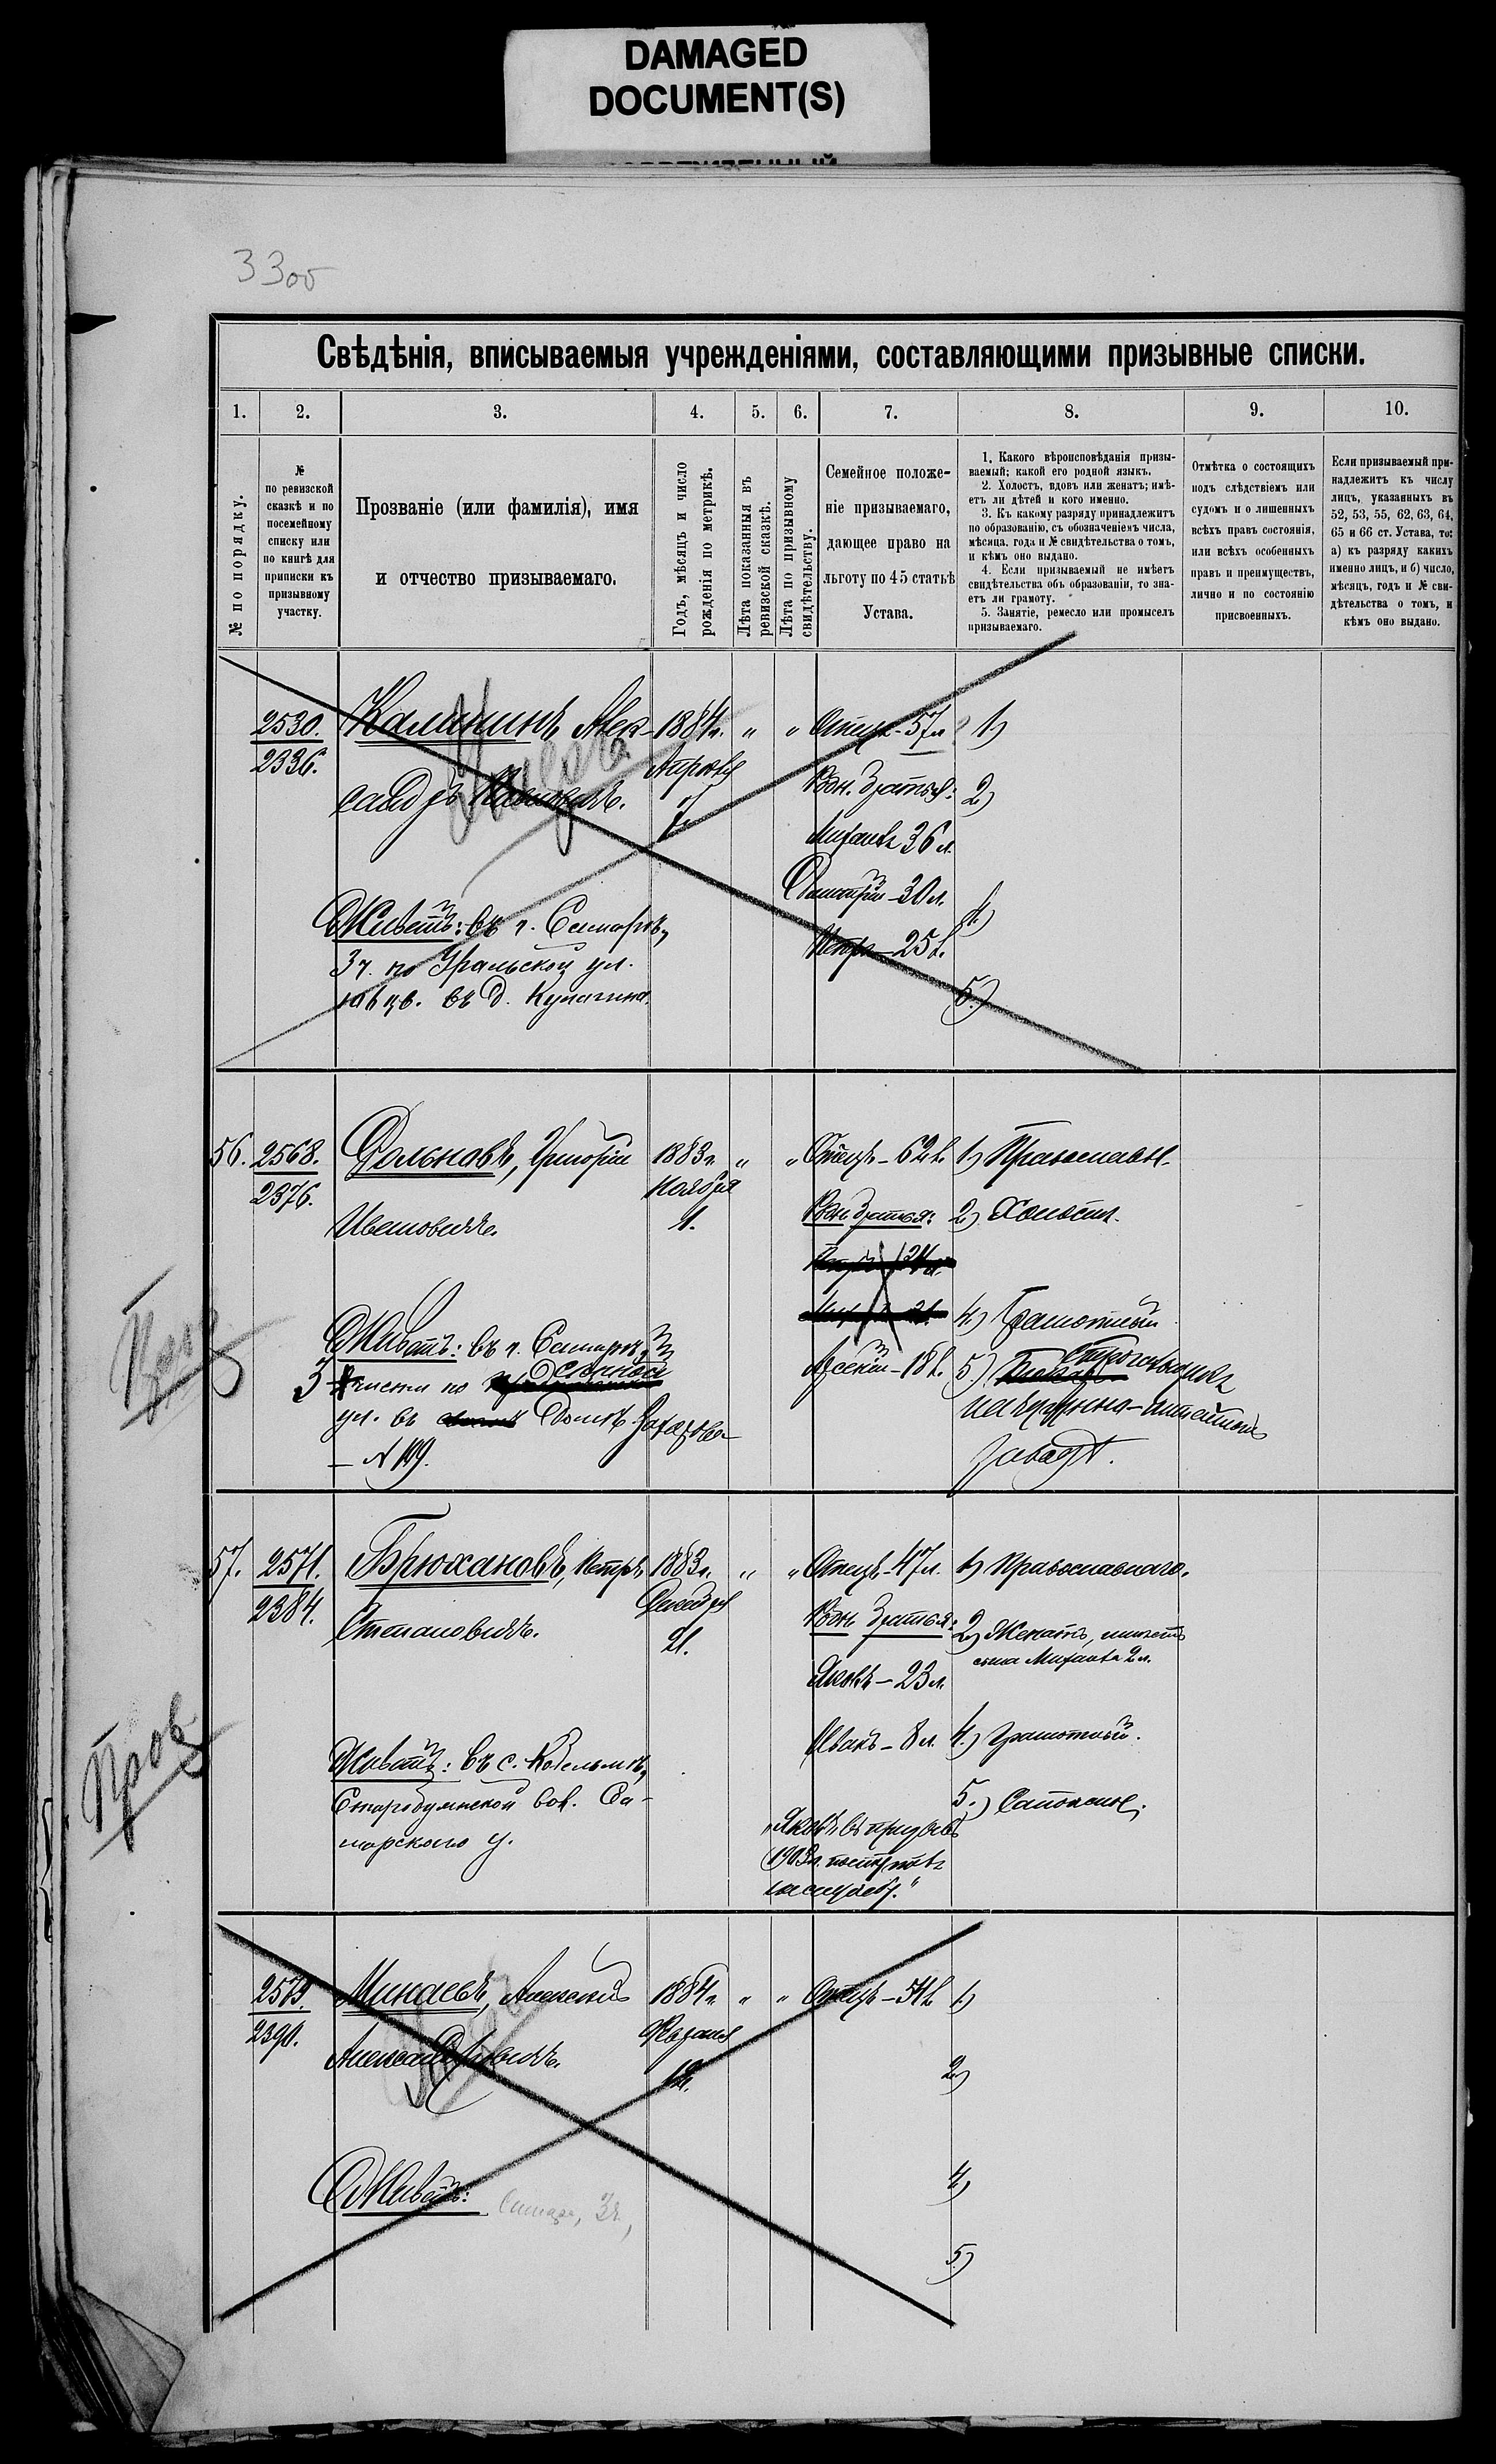 DAMAGED
DOCUMENT(S)
33об
Свѣдѣнія, вписываемыя учрежденіями, составляющими призывные списки.
1. 2. 3. 4. 5. 6. 7. 8. 9. 10.
№ по порядку.
№
по ревизской
сказкѣ и по
посемейному
списку или
по книгѣ для
приписки къ
призывному
участку.
Прозваніе (или фамилія), имя
и отчество призываемаго.
Годъ, мѣсяцъ и число
рожденія по метрикѣ.
Лѣта показанныя въ
ревизской сказкѣ.
Лѣта по призывному
свидѣтельству.
Семейное положе-
ніе призываемаго,
дающее право на
льготу по 45 статьѣ
Устава.
1. Какого вѣроисповѣданія призы-
ваемый; какой его родной языкъ.
2. Холостъ, вдовъ или женатъ; имѣ-
етъ ли дѣтей и кого именно.
3. Къ какому разряду принадлежитъ
по образованію, съ обозначеніемъ числа,
мѣсяца, года и № свидѣтельства о томъ,
и кѣмъ оно выдано.
4. Если призываемый не имѣетъ
свидѣтельства объ образованіи, то зна-
етъ ли грамоту.
5. Занятіе, ремесло или промыселъ
призываемаго.
Отмѣтка о состоящихъ
подъ слѣдствіемъ или
судомъ и о лишенныхъ
всѣхъ правъ состоянія,
или всѣхъ особенныхъ
правъ и преимуществъ,
лично и по состоянію
присвоенныхъ.
Если призываемый при-
надлежитъ къ числу
лицъ, указанныхъ въ
52, 53, 55, 62, 63, 64,
65 и 66 ст. Устава, то:
а) къ разряду какихъ
именно лицъ, и б) число,
мѣсяцъ, годъ и № сви-
дѣтельства о томъ, и
кѣмъ оно выдано.
2530.
2336.
Калининъ, Алек-
сандръ
Живетъ: въ г. Самарѣ,
3 ч. по Уральской ул.
въ д. Кулагина.
1884 г.
Апрѣля
„ „
Отецъ - 57 л.
Родн. братья:
Михаилъ 36 л.
Дмитрій - 30 л.
Петръ - 25 л.
1)
2)
4)
5)
56. 2568.
2376.
Дольновъ, Григорій
Ивановичъ.
Живетъ: въ г. Самарѣ,
3 части по
ул. въ домѣ Захарова
- № 199.
1883 г.
Ноября
1.
„ „
Отецъ - 62 л.
Родн. братья:
Алексѣй - 18 л.
1) Православн.
2) Холостъ.
4) Грамотный
5)
на чугунно-литейномъ
заводѣ.
Пров
57. 2571.
2384.
Брюхановъ, Петръ
Степановичъ.
Живетъ: въ с. Кобельмѣ,
вол. Са-
марскаго у.
1883 г.
Декабря
21.
„ „
Отецъ - 47 л.
Родн. братья:
Яковъ - 23 л.
Иванъ - 8 л.
„Яковъ въ призывъ
1903 г. поступилъ
1) Православнаго.
2) Женатъ, имѣетъ
сына Михаила 2 л.
4) Грамотный.
5)
Пров
2579.
2390.
Минаевъ, Алексѣй
Александровичъ.
Живетъ: Самара, 3 ч.,
1884 г.
Февраля
12.
„ „
Отецъ - 54 л.
1)
2)
4)
5)